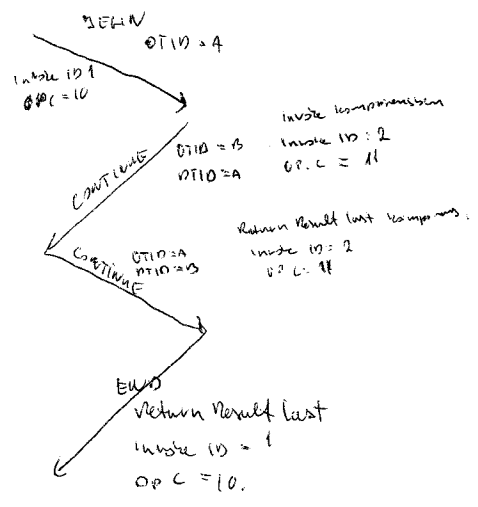 BEGIN
OTID = A
Invoke ID 1
OPC = 10
CONTINUE
OTID = B
DTID = A
Invoke ID : 2
OP. C = 11
CONTINUE
OTID = A
DTID = B
Return Result last
Invoke ID : 2
OP C : 11
END
Return Result last
Invoke ID = 1
Op C = 10.